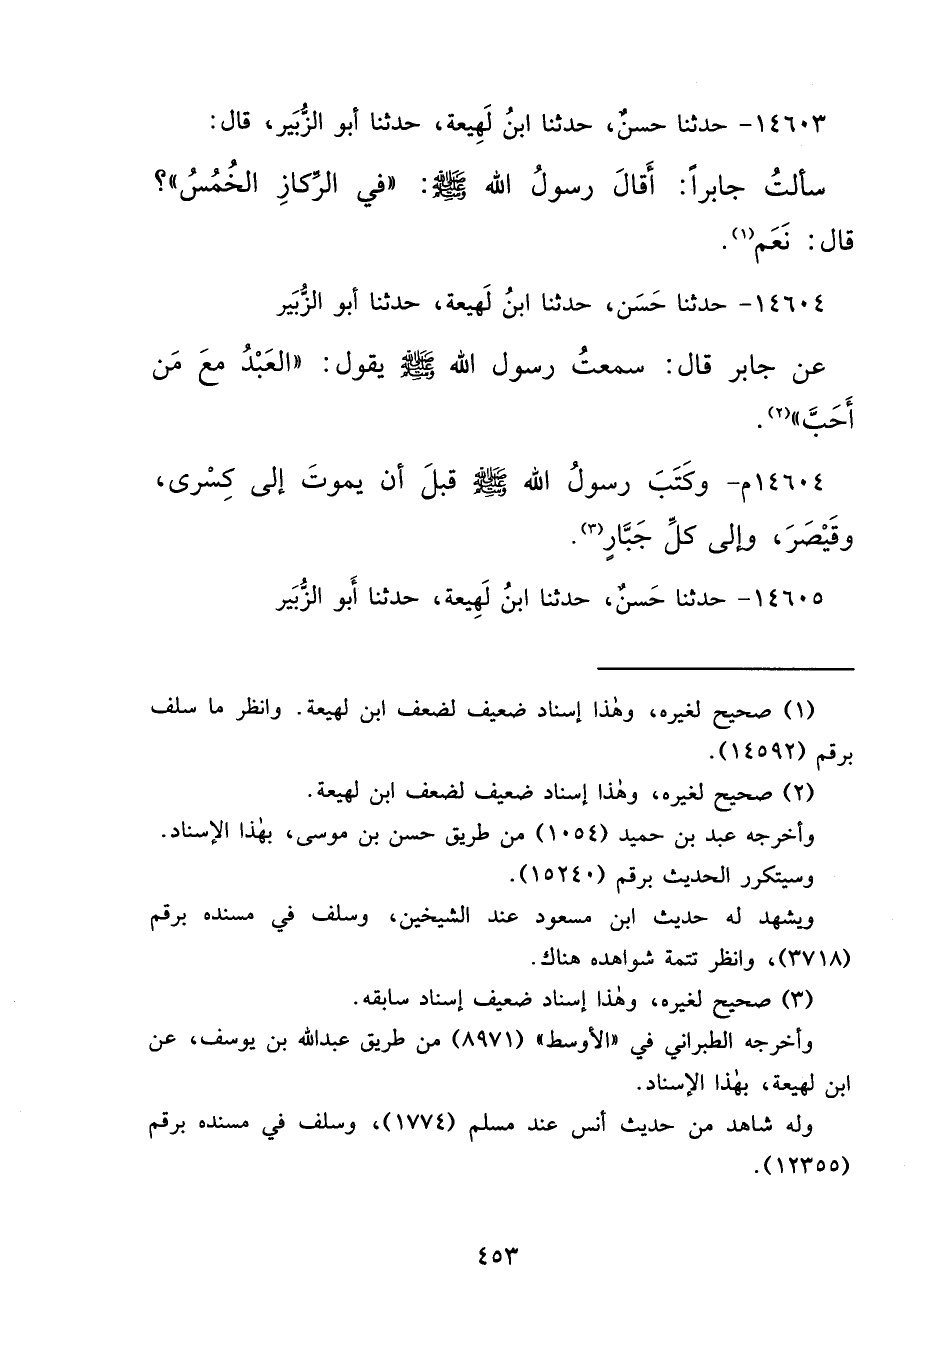 ١٤٦٠٣- حدثنا حسنٌ، حدثنا ابنُ لَهِيعة، حدثنا أبو الزُّبَير، قال:
سألتُ جابراً: أَقالَ رسولُ الله ﷺ: «في الرِّكازِ الخُمُسُ»؟
قال: نَعَم(١).
١٤٦٠٤- حدثنا حَسَن، حدثنا ابنُ لَهيعة، حدثنا أبو الزُّبَير
عن جابر قال: سمعتُ رسول الله ﷺ يقول: «العَبْدُ معَ مَن
أَحَبَّ»(٢).
١٤٦٠٤م- وكَتَبَ رسولُ الله ﷺ قبلَ أن يموتَ إلى كِسْرى،
وقَيْصَرَ، وإلى كلِّ جَبَّارٍ(٣).
١٤٦٠٥- حدثنا حَسنٌ، حدثنا ابنُ لَهِيعة، حدثنا أَبو الزُّبَير
(١) صحيح لغيره، وهٰذا إسناد ضعيف لضعف ابن لهيعة. وانظر ما سلف
برقم (١٤٥٩٢).
(٢) صحيح لغيره، وهٰذا إسناد ضعيف لضعف ابن لهيعة.
وأخرجه عبد بن حميد (١٠٥٤) من طريق حسن بن موسى، بهٰذا الإسناد.
وسيتكرر الحديث برقم (١٥٢٤٠).
ويشهد له حديث ابن مسعود عند الشيخين، وسلف في مسنده برقم
(٣٧١٨)، وانظر تتمة شواهده هناك.
(٣) صحيح لغيره، وهٰذا إسناد ضعيف إسناد سابقه.
وأخرجه الطبراني في «الأوسط» (٨٩٧١) من طريق عبدالله بن يوسف، عن
ابن لهيعة، بهٰذا الإسناد.
وله شاهد من حديث أنس عند مسلم (١٧٧٤)، وسلف في مسنده برقم
(١٢٣٥٥).
٤٥٣